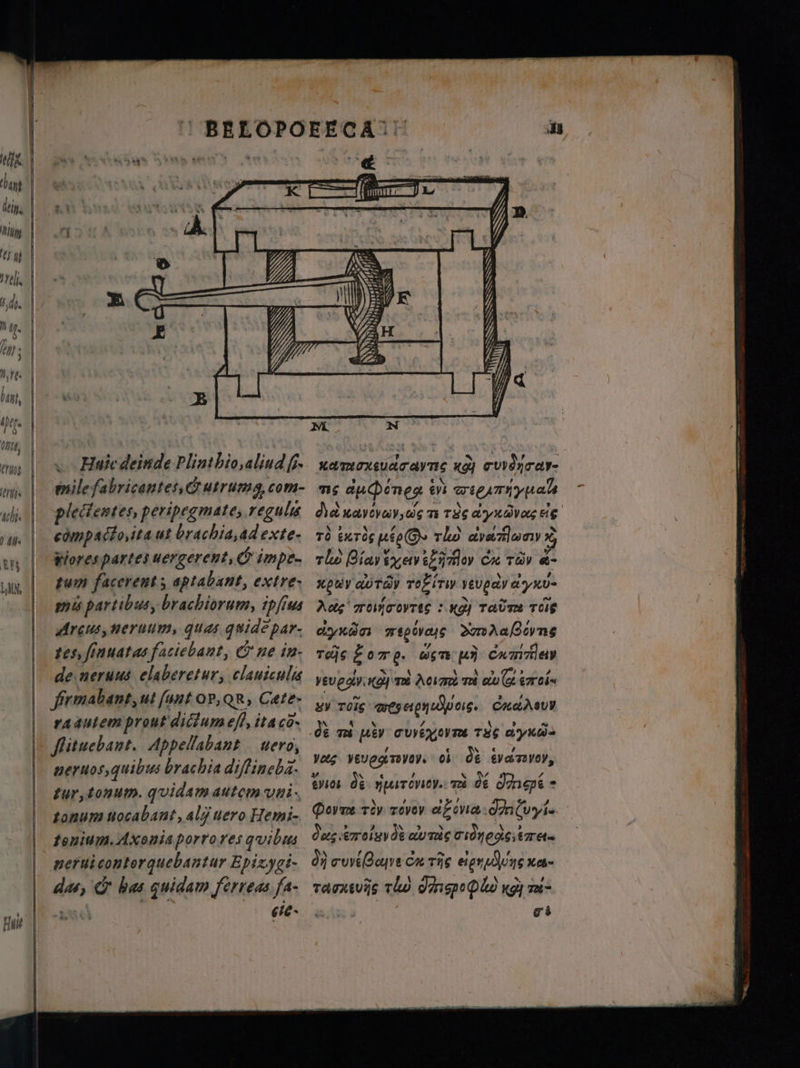 BELOPOEECA
K L
A D
O
E F
E H
B G
M N
Huic deinde Plinthio, aliud si-
mile fabricantes, & utrumq, com-
plectentes, peripegmate, regulis
cōmpacto, ita ut brachia, ad exte-
riores partes uergerent, & impe-
tum facerent; aptabant, extre-
mis partibus, brachiorum, ipsius
Arcus, neruum, quas quidē par-
tes, sinuatas faciebant, & ne in-
de neruus elaberetur, clauiculis
firmabant, ut sunt OP, QR, Cete-
ra autem prout dictum est, ita cō-
stituebant. Appellabant uero,
neruos, quibus brachia distinebā-
tur, tonum. quidam autem uni-
tonum uocabant, alij uero Hemi-
tonium. Axonia porro res quibus
nerui contorquebantur Epizygi-
das, & has quidam ferreas fa-
cie-
κατασκευάσαντες καὶ συνδήσαν-
τες ἀμφότερα ἑνὶ περιπήγματι
διὰ κανόνων, ὡς τε τοὺς ἀγκῶνας εἰς
τὸ ἐκτὸς μέρος τὴν ἀνάπτωσιν καὶ
τὴν βίαν ἔχειν ἐξῆπτον ἐκ τῶν ἄ-
κρων αὐτῶν τοξίτιν νευρὰν ἀγκύ-
λας ποιήσοντες : καὶ ταῦτα τοῖς
ἀγκῶσι περόναις ἀπολαβόντες
ταῖς ξ ο π ρ. ὥστε μὴ ἐκπίπτειν
νευράν. καὶ τὰ λοιπὰ τὰ αὐτὰ ἐποί-
ουν τοῖς προειρημένοις. ἐκάλουν
δὲ τὰ μὲν συνέχοντα τοὺς ἀγκῶ-
νας νευρότονον. οἱ δὲ ἐνάτονον,
ἔνιοι δὲ ἡμιτόνιον. τὰ δὲ ἐπιστρέ-
φοντα τὸν τόνον ἀξόνια ἐπιζυγί-
δας. ἐποίουν δὲ αὐτὰς σιδηρᾶς, ἐπει-
δὴ συνέβαινε ἐκ τῆς εἰρημένης κα-
τασκευῆς τὴν ἐπιστροφὴν καὶ τά-
σι